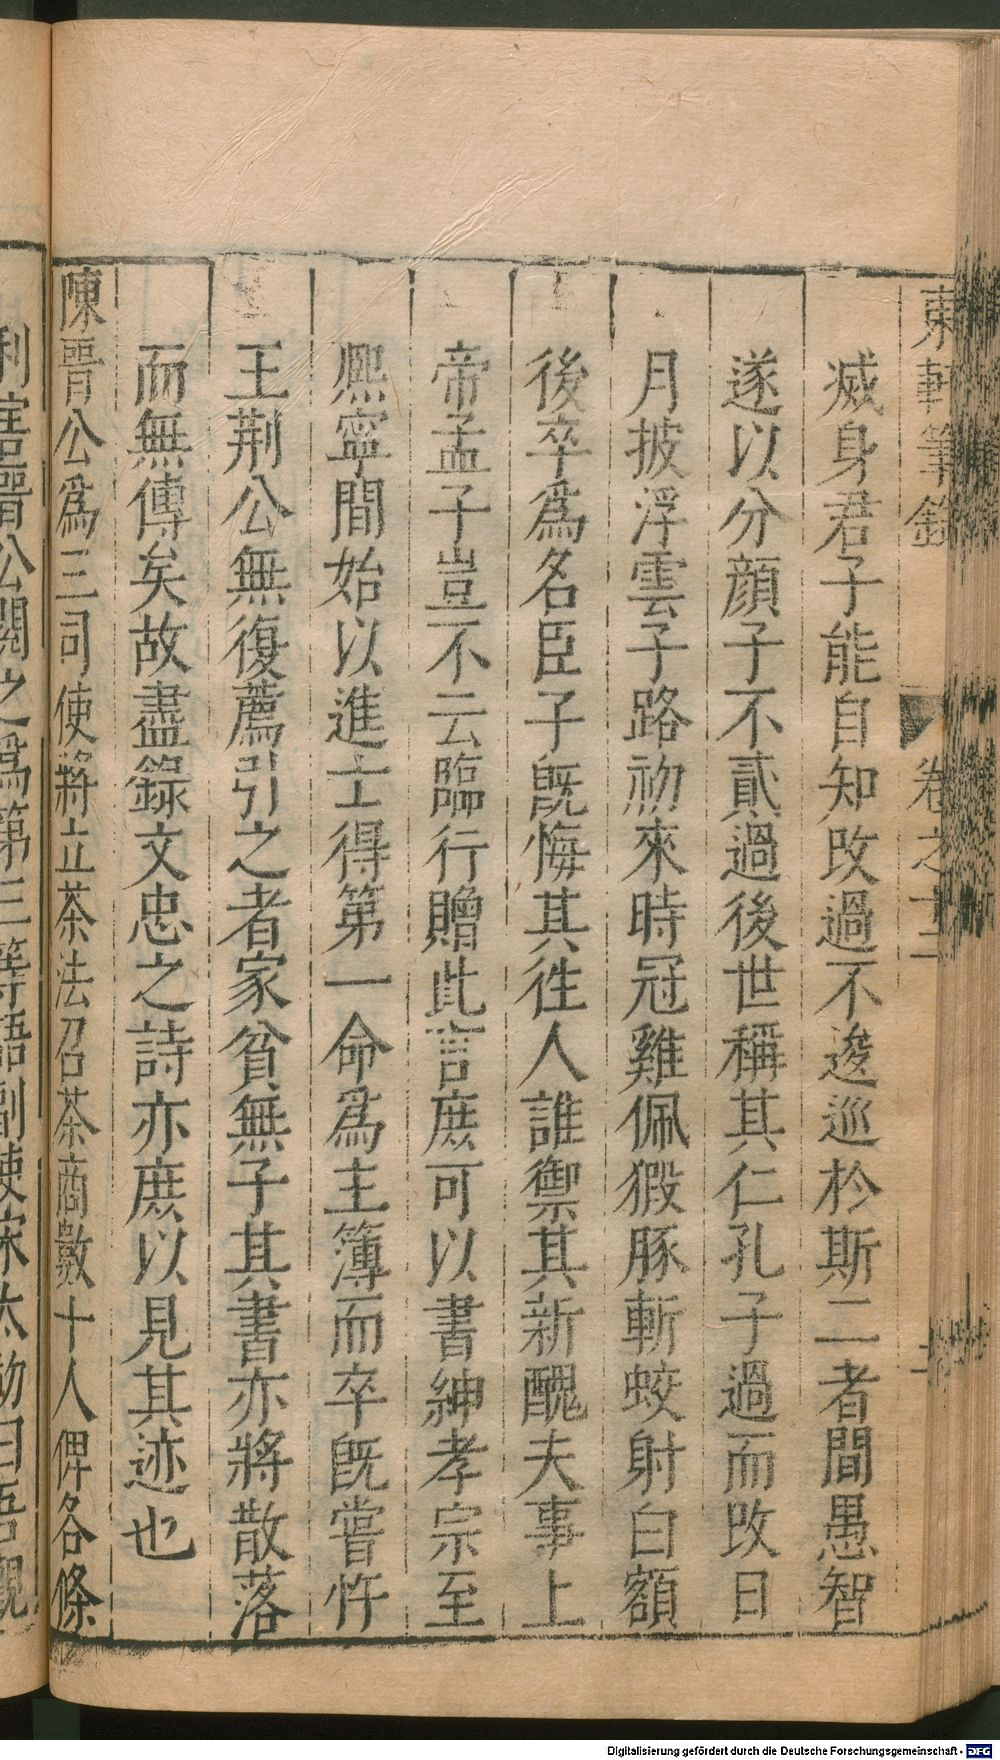 東軒筆錄 卷之十二 二
烕身君子能自知改過不逡巡於斯二者間愚智
遂以分顔子不貳過後世稱其仁孔子過而改日
月披浮雲子路初來時冠雞佩猳豚斬蛟射白額
後卒爲名臣子旣悔其徃人誰禦其新醜夫事上
帝孟子豈不云臨行贈此言庶可以書紳孝宗至
熙寧間始以進士得第一命爲主簿而卒旣嘗忤
王荆公無復薦引之者家貧無子其書亦將散落
而無傳矣故盡錄文忠之詩亦庶以見其迹也
陳晉公爲三司使將立茶法召茶商數十人俾各條
利害晉公閱之爲第三等語副使宋太初曰吾觀
Digitalisierung gefördert durch die Deutsche Forschungsgemeinschaft - DFG